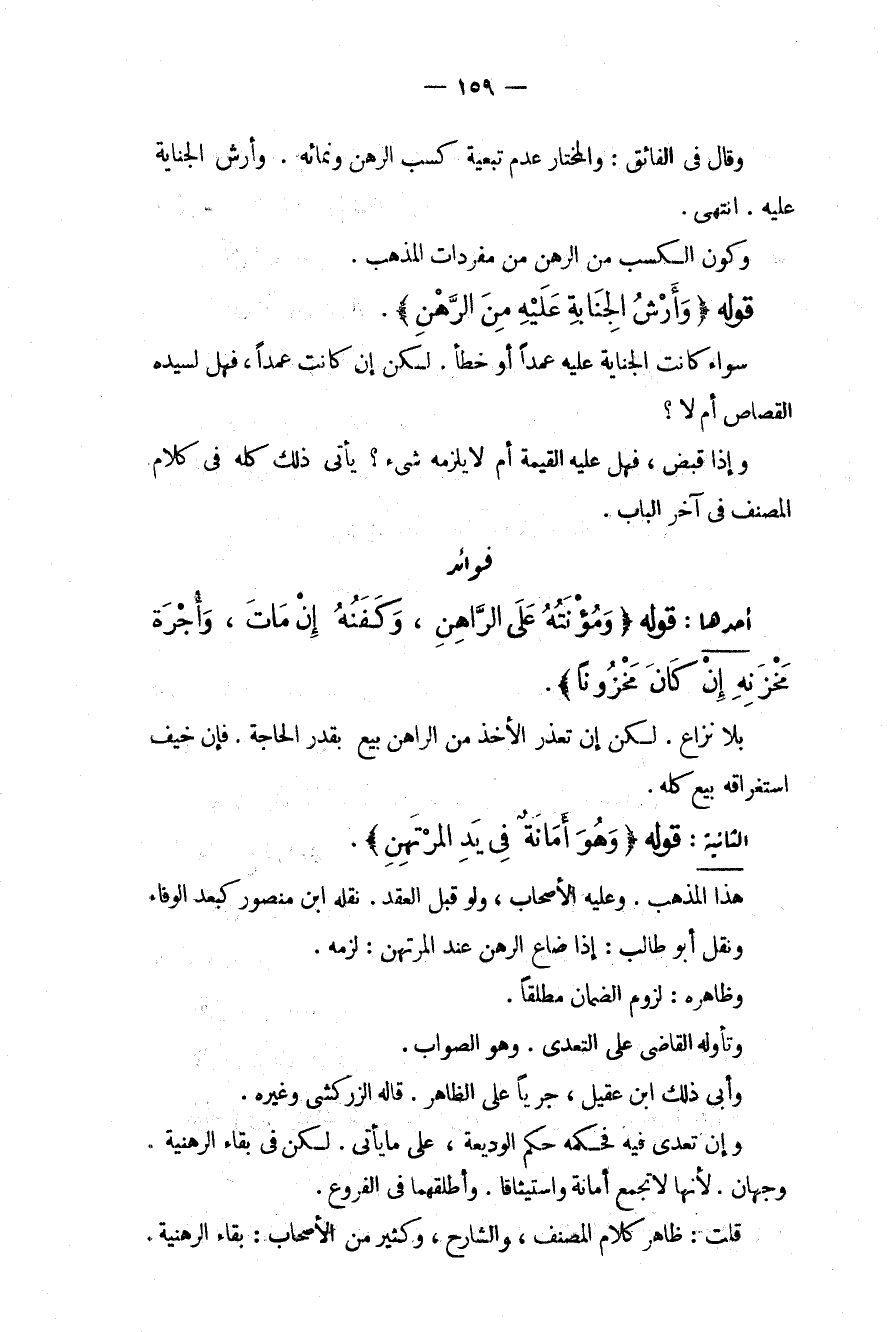 — ١٥٩ —
وقال فى الفائق : والمختار عدم تبعية كسب الرهن ونمائه . وأرش الجناية
عليه . انتهى .
وكون الكسب من الرهن من مفردات المذهب .
قوله ﴿ وَأَرْشُ الْجِنَايَةِ عَلَيْهِ مِنَ الرَّهْنِ ﴾ .
سواء كانت الجناية عليه عمداً أو خطأ . لكن إن كانت عمداً ، فهل لسيده
القصاص أم لا ؟
وإذا قبض ، فهل عليه القيمة أم لا يلزمه شىء ؟ يأتى ذلك كله فى كلام
المصنف فى آخر الباب .
فوائد
أحدها : قوله ﴿ وَمُؤْنَتُهُ عَلَى الرَّاهِنِ ، وَكَفَنُهُ إِنْ مَاتَ ، وَأُجْرَةُ
مَخْزَنِهِ إِنْ كَانَ مَخْزُونًا ﴾ .
بلا نزاع . لكن إن تعذر الأخذ من الراهن بيع بقدر الحاجة . فإن خيف
استغراقه بيع كله .
الثانية : قوله ﴿ وَهُوَ أَمَانَةٌ فِى يَدِ المرْتَهِنِ ﴾ .
هذا المذهب . وعليه الأصحاب ، ولو قبل العقد . نقله ابن منصور كبعد الوفاء
ونقل أبو طالب : إذا ضاع الرهن عند المرتهن : لزمه .
وظاهره : لزوم الضمان مطلقاً .
وتأوله القاضى على التعدى . وهو الصواب .
وأبى ذلك ابن عقيل ، جرياً على الظاهر . قاله الزركشى وغيره .
وإن تعدى فيه فحكمه حكم الوديعة ، على ما يأتى . لكن فى بقاء الرهنية .
وجهان . لأنها لا تجمع أمانة واستيثاقا . وأطلقهما فى الفروع .
قلت : ظاهر كلام المصنف ، والشارح ، وكثير من الأصحاب : بقاء الرهنية .